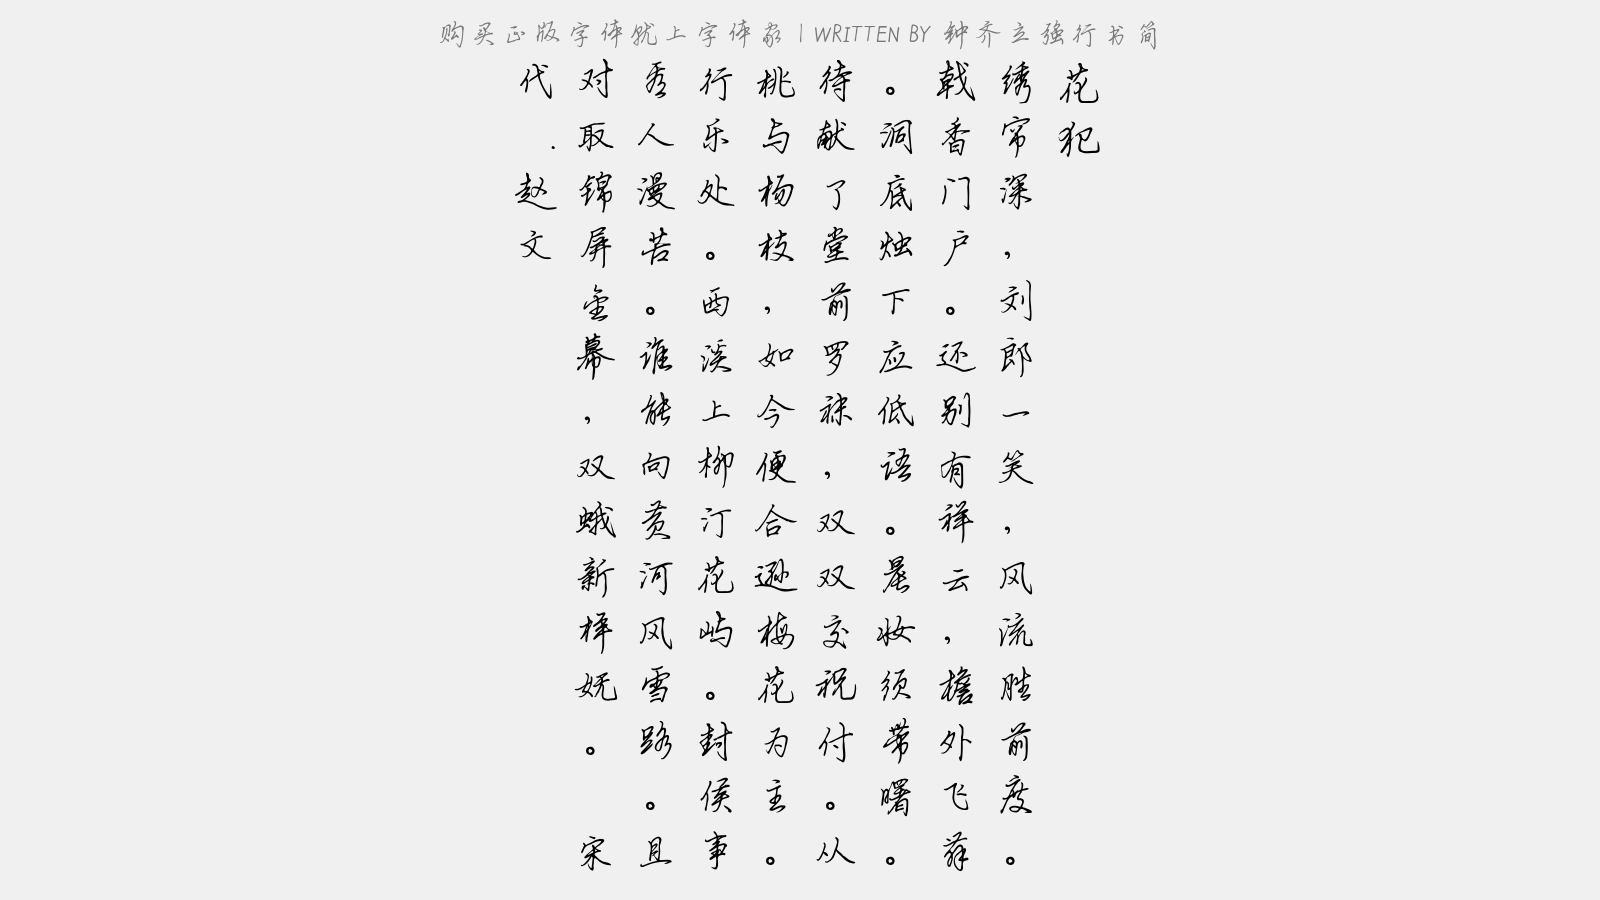 购买正版字体就上字体家 | WRITTEN BY 钟齐立强行书简
花犯
绣帘深，刘郎一笑，风流胜前度。
戟香门户。还别有祥云，檐外飞舞
。洞底烛下应低语。晨妆须带曙。
待献了堂前罗袜，双双交祝付。从
桃与杨枝，如今便合逊梅花为主。
行乐处。西溪上柳汀花屿。封侯事
秀人漫苦。谁能向黄河风雪路。且
对取锦屏金幕，双蛾新样妩。宋
代.赵文